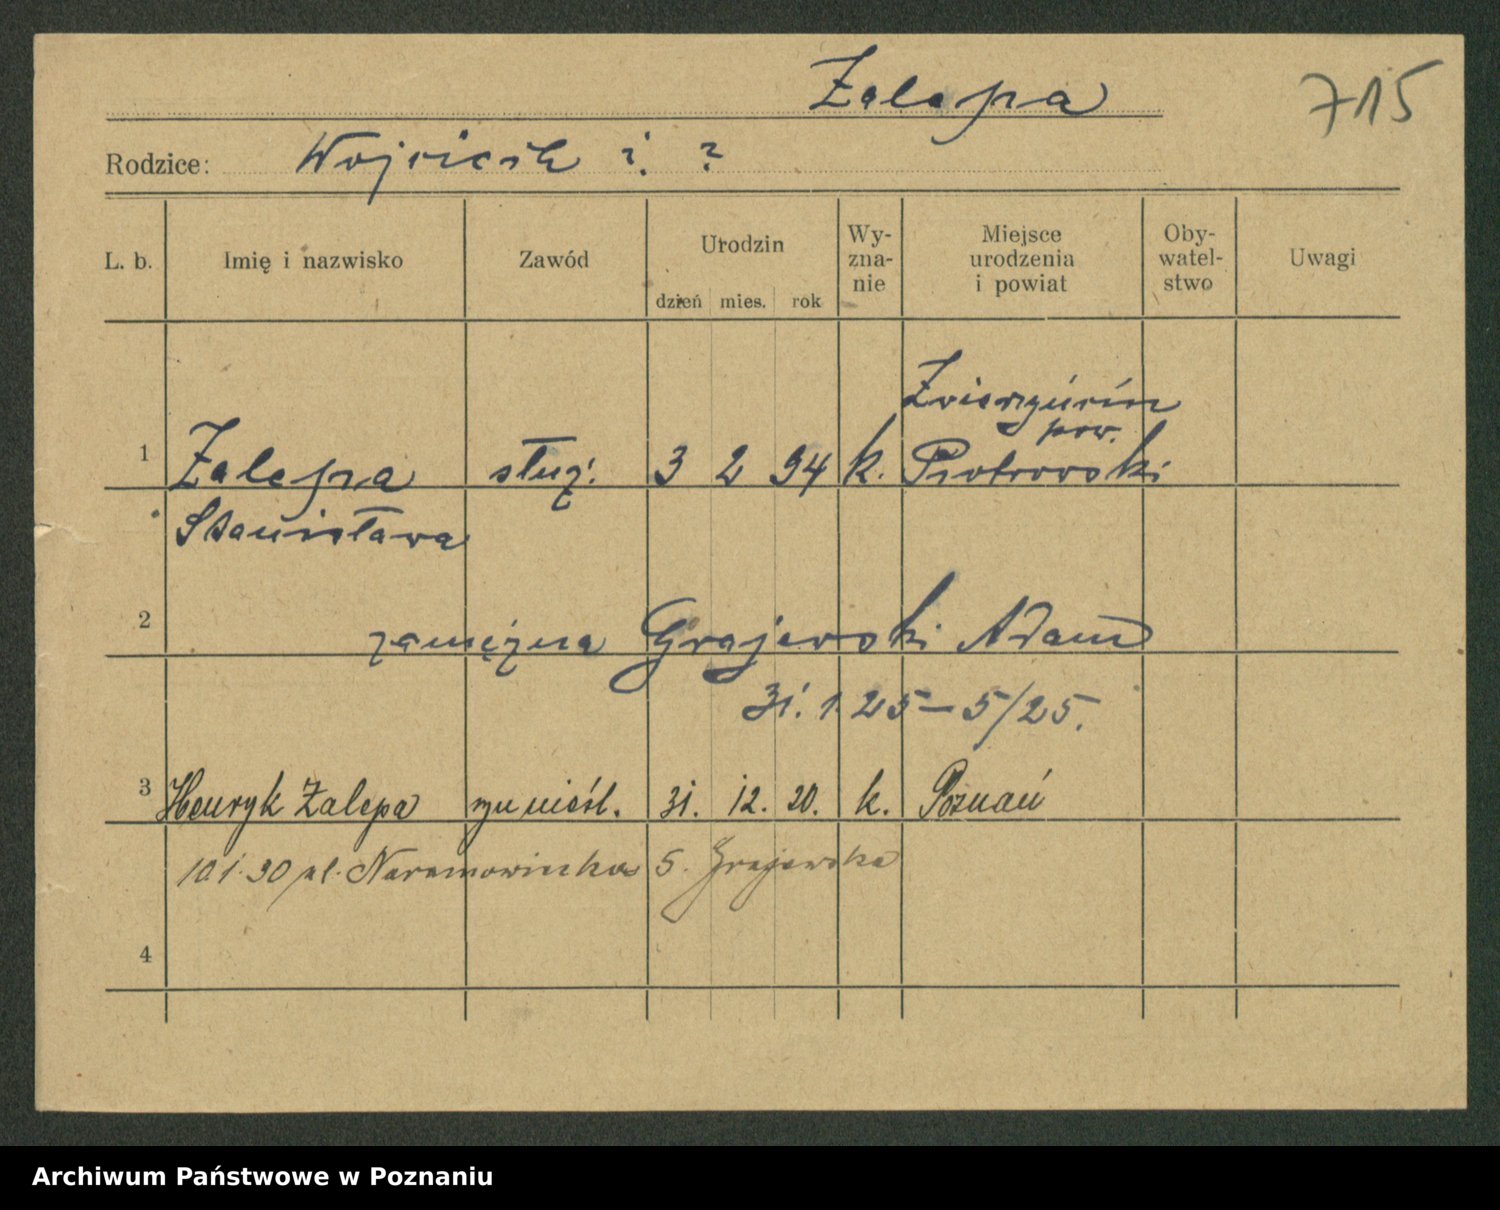 Zalepa
715
Rodzice: Wojciech i ?
L. b. Imię i nazwisko Zawód Urodzin dzień mies. rok Wy-zna-nie Miejsce urodzenia i powiat Oby-watel-stwo Uwagi
pow.
1 Zalepa służ. 3 2 94 k. Piotrowski
Stanisława
2 zamężna Grajewski Adam
31. 1 25 – 5/25.
3 Henryk Zalepa syn nieśl. 31. 12. 20. k. Poznań
10.1.30 ul. Naramowicka 5. Grajewska
4
Archiwum Państwowe w Poznaniu